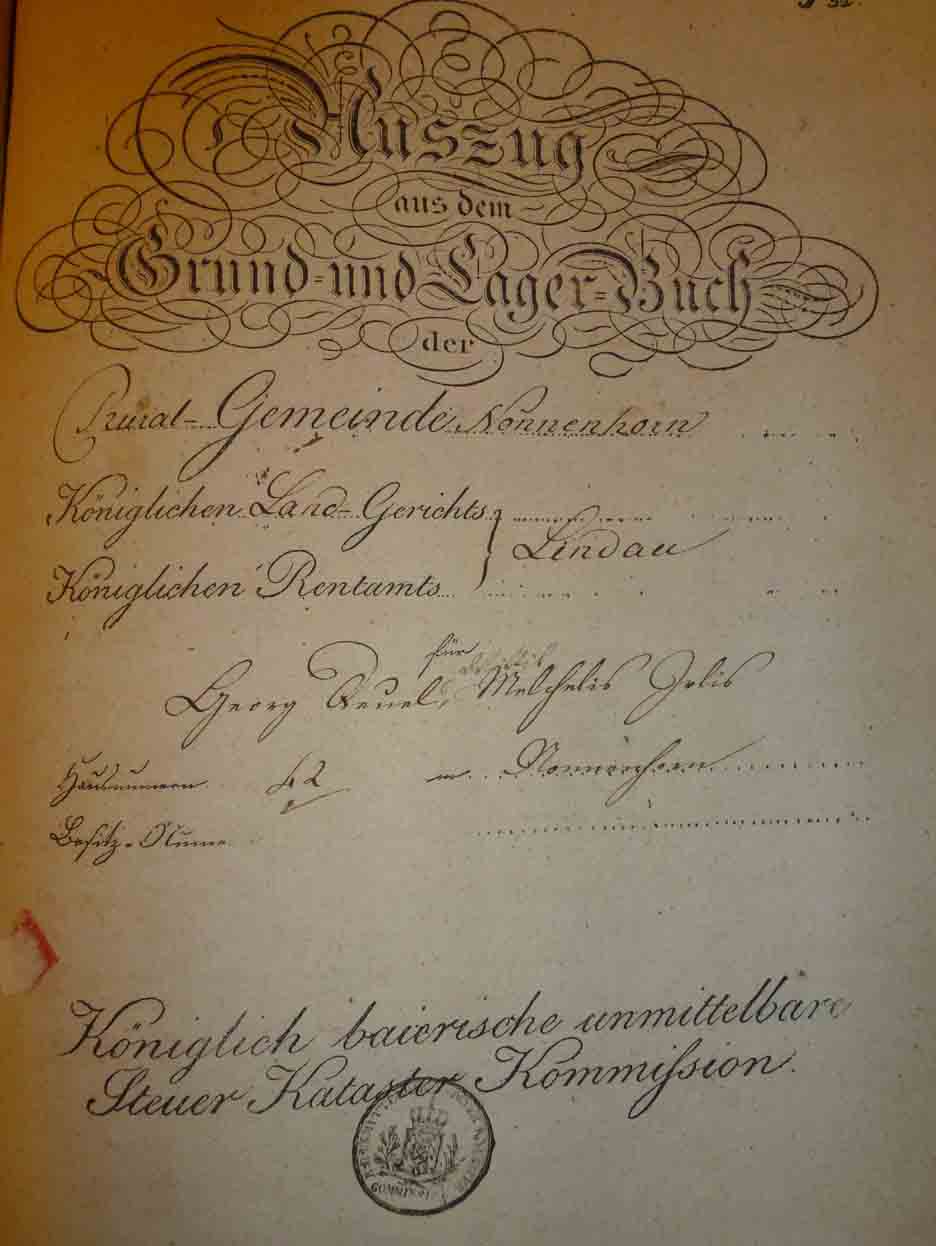 Auszug
aus dem
Grund- und Lager-Buch
der
Rural-Gemeinde Nonnenhorn
Königlichen Land-Gerichts
Lindau
Königlichen Rentamts
für
Georg
Hausnummern 42 in Nonnenhorn
Besitz-Numer
Königlich baierische unmittelbare
Steuer Kataster Kommission.